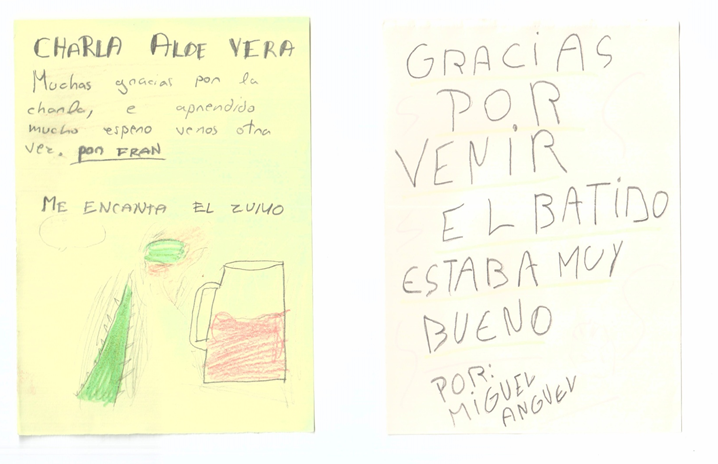 CHARLA ALOE VERA
Muchas gracias por la
charla, e aprendido
mucho espero veros otra
vez. por FRAN
ME ENCANTA EL ZUMO
GRACIAS
POR
VENIR
EL BATIDO
ESTABA MUY
BUENO
POR:
MIGUEL
ANGUEL